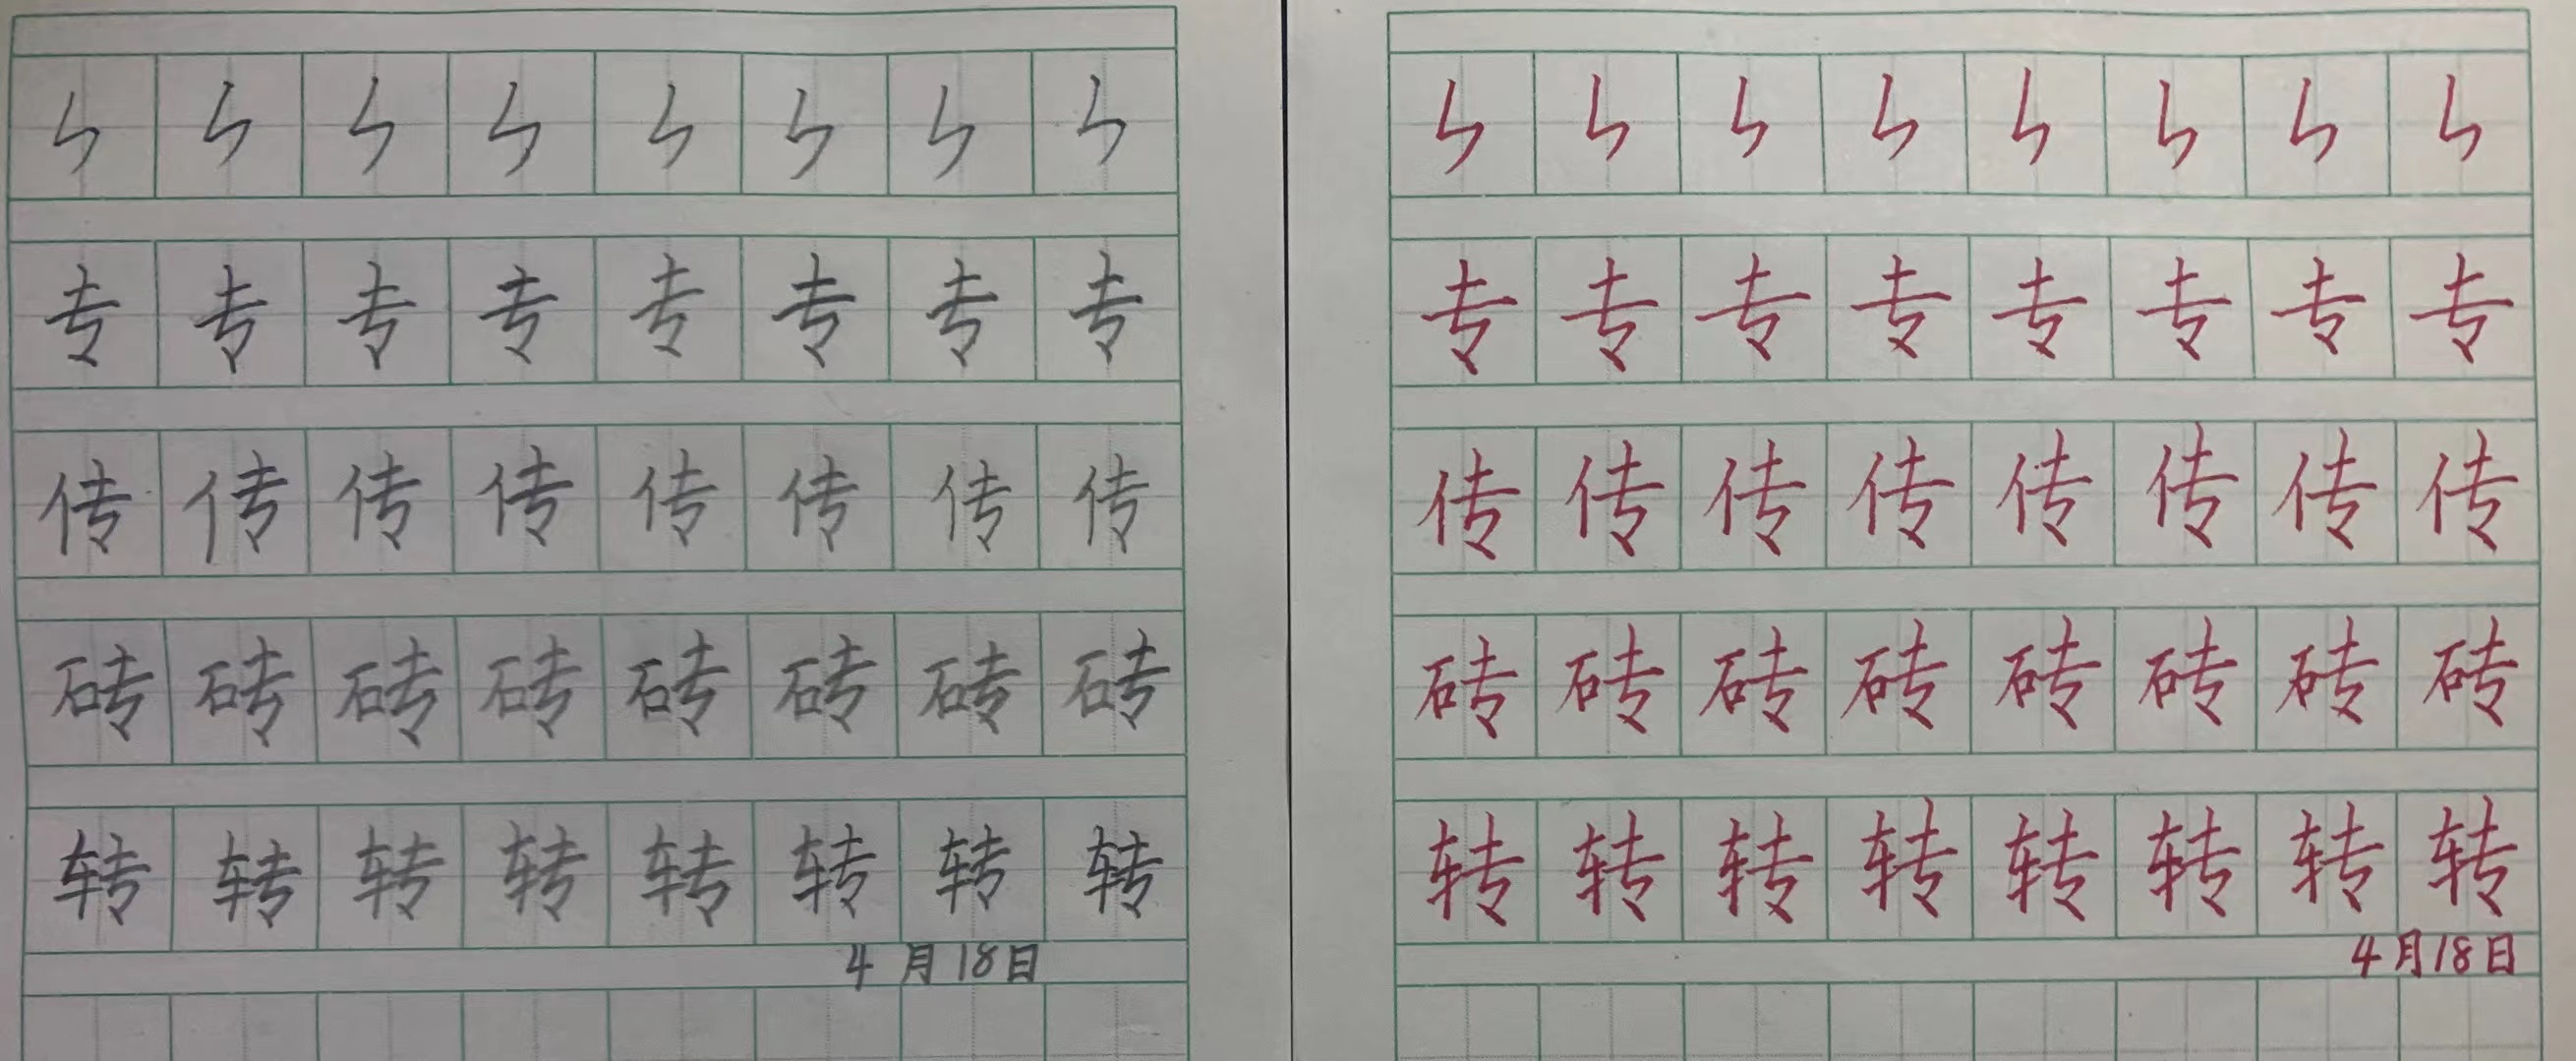 ㄣ ㄣ ㄣ ㄣ ㄣ ㄣ ㄣ ㄣ
专 专 专 专 专 专 专 专
传 传 传 传 传 传 传 传
砖 砖 砖 砖 砖 砖 砖 砖
转 转 转 转 转 转 转 转
4月18日
ㄣ ㄣ ㄣ ㄣ ㄣ ㄣ ㄣ ㄣ
专 专 专 专 专 专 专 专
传 传 传 传 传 传 传 传
砖 砖 砖 砖 砖 砖 砖 砖
转 转 转 转 转 转 转 转
4月18日